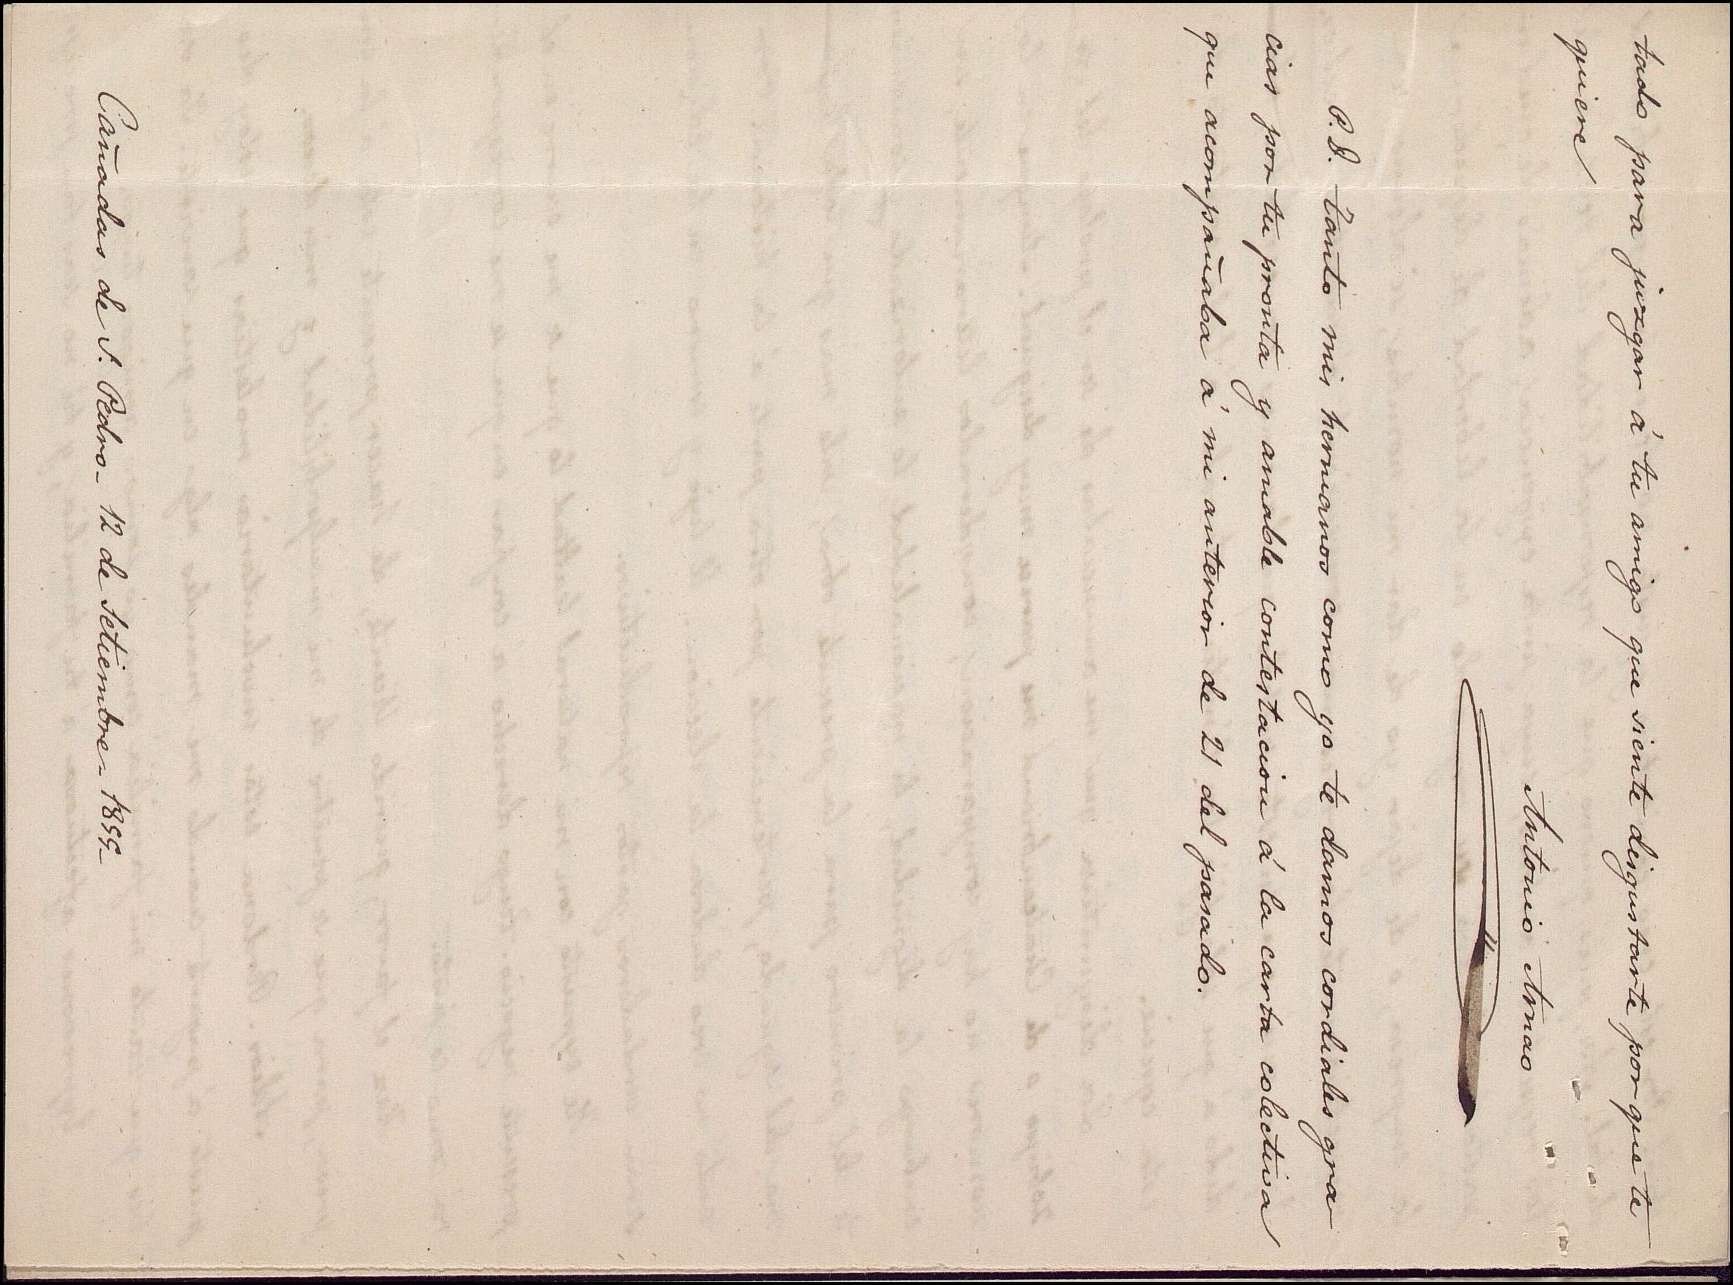 tado para juzgar á tu amigo que siente disgustarte porque te
quiere
Antonio Arnao
P.D. Tanto mis hermanos como yo te damos cordiales gra
cias por tu pronta y amable contestacion á la carta colectiva
que acompañaba á mi anterior de 21 del pasado.
Cañadas de S. Pedro - 12 de Setiembre - 1899 -